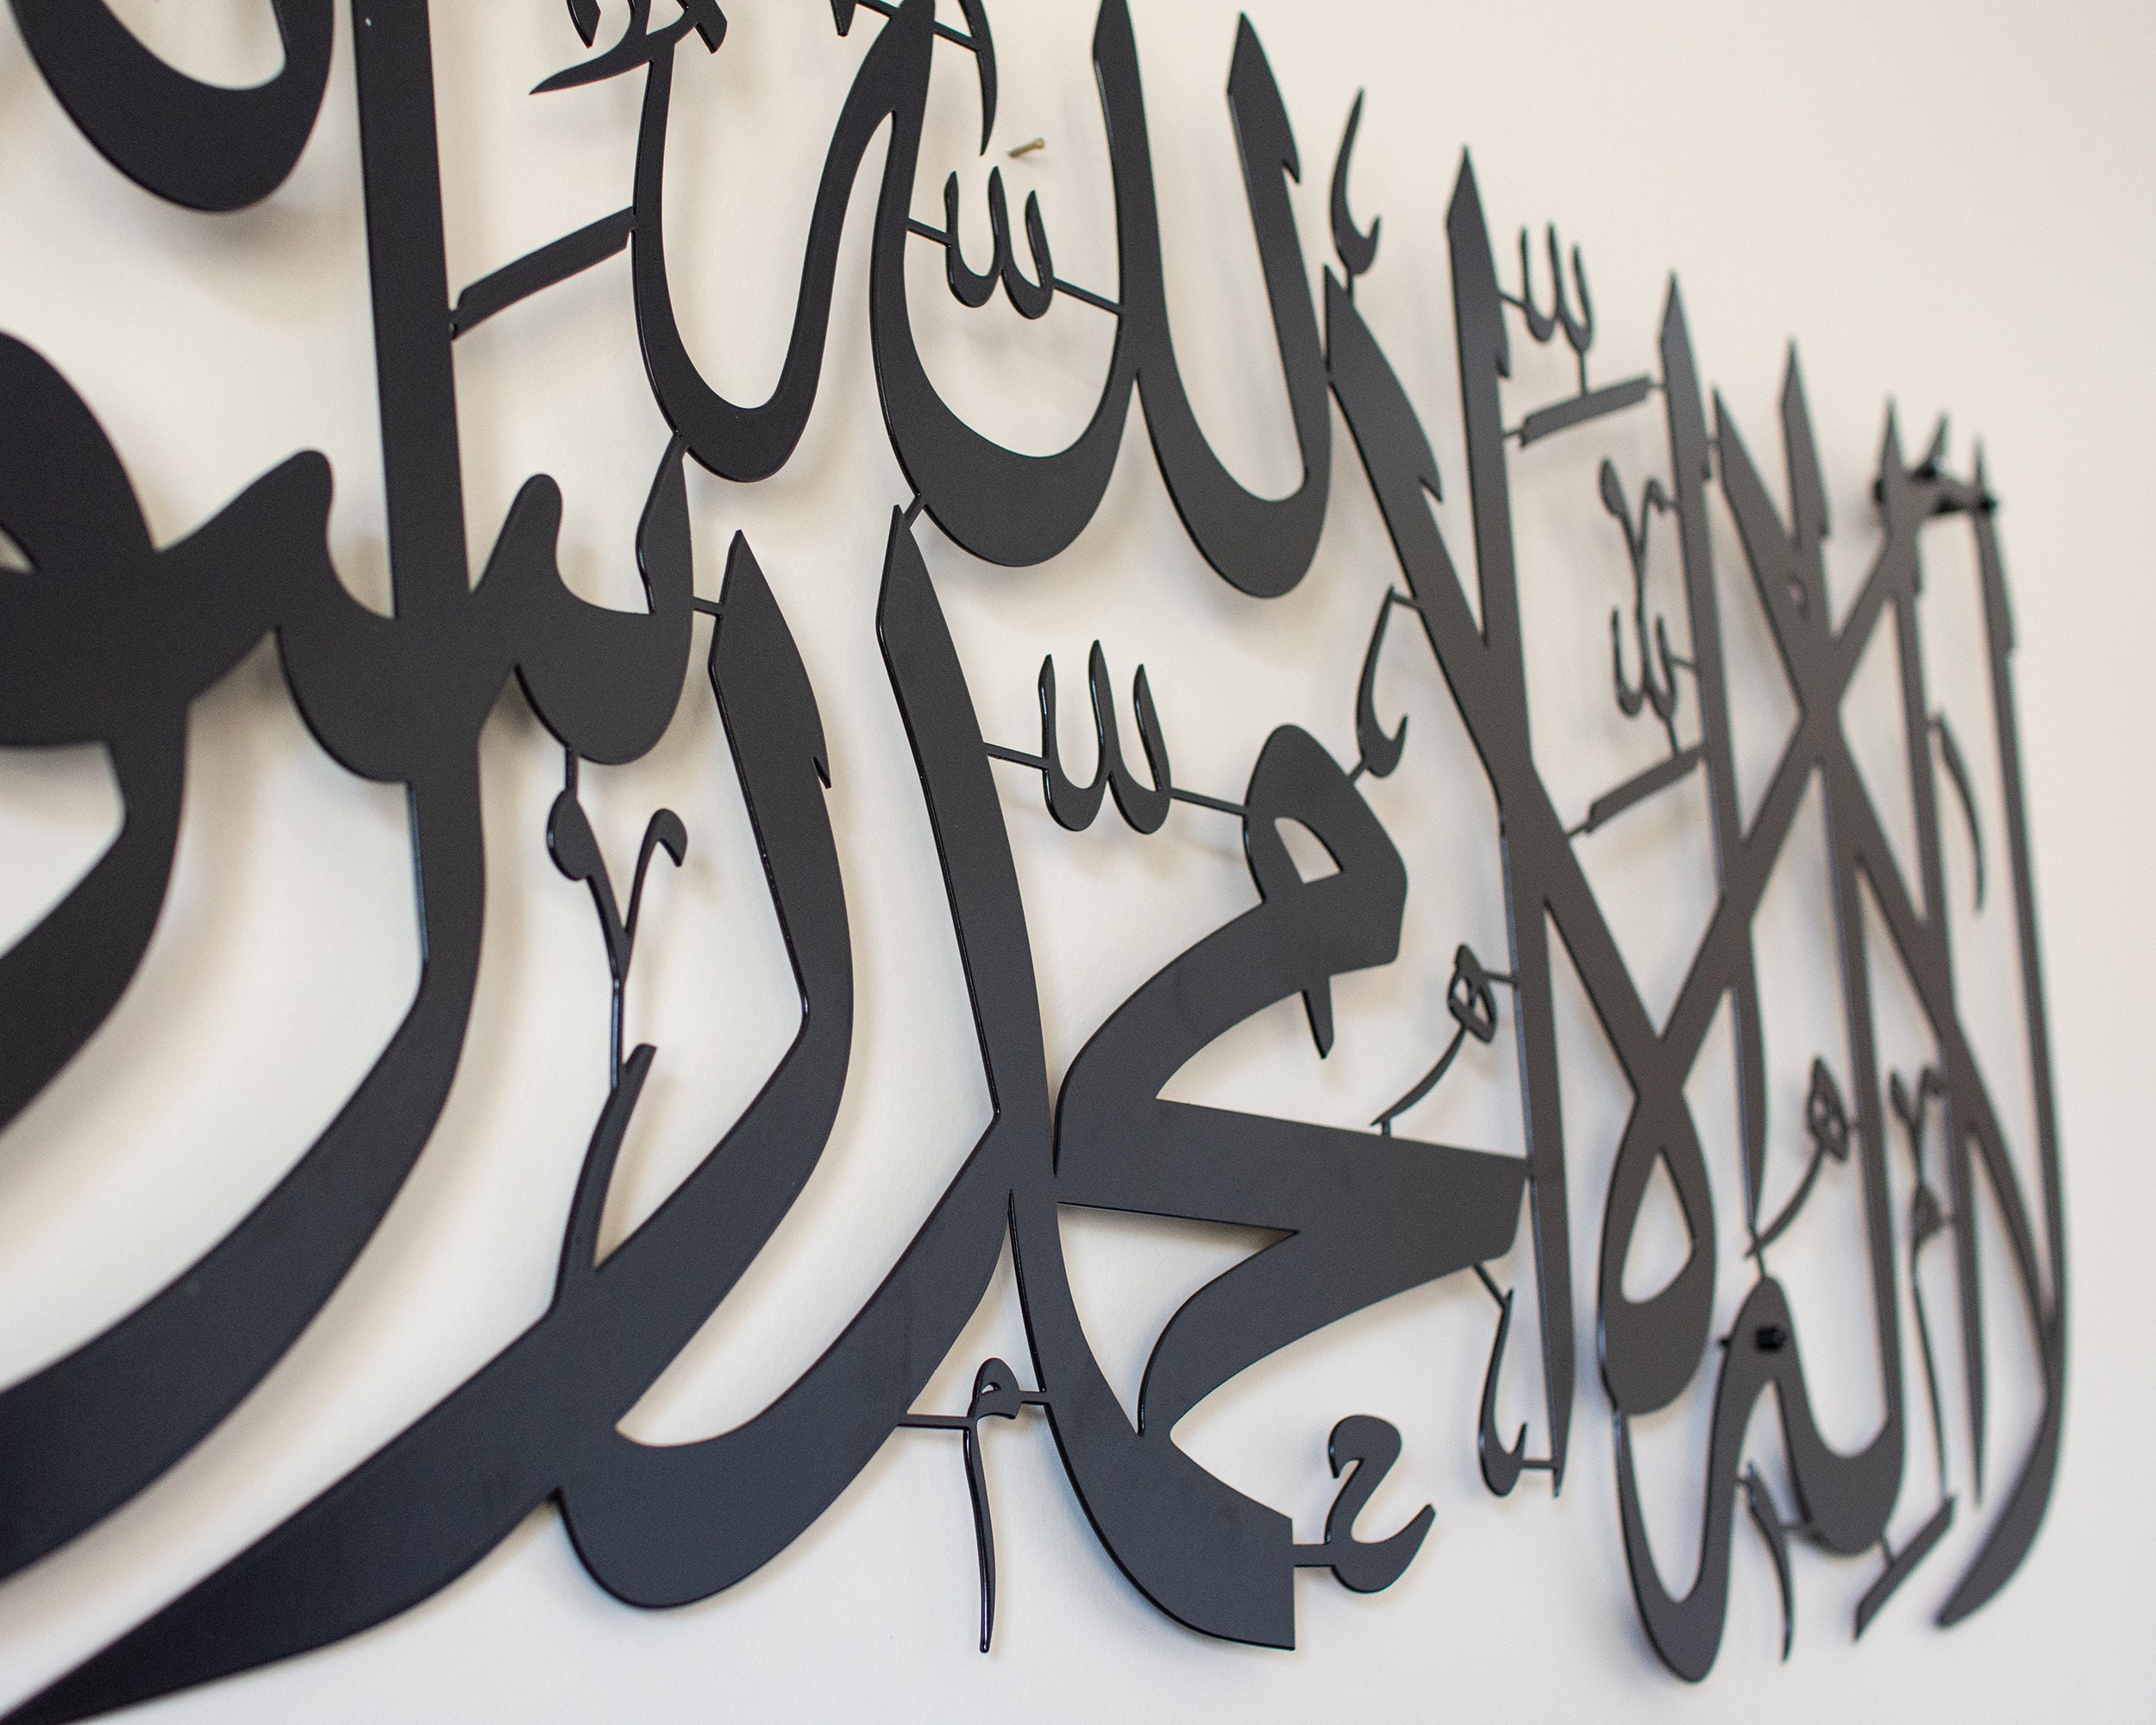 لا إله إلا الله
محمد رسول